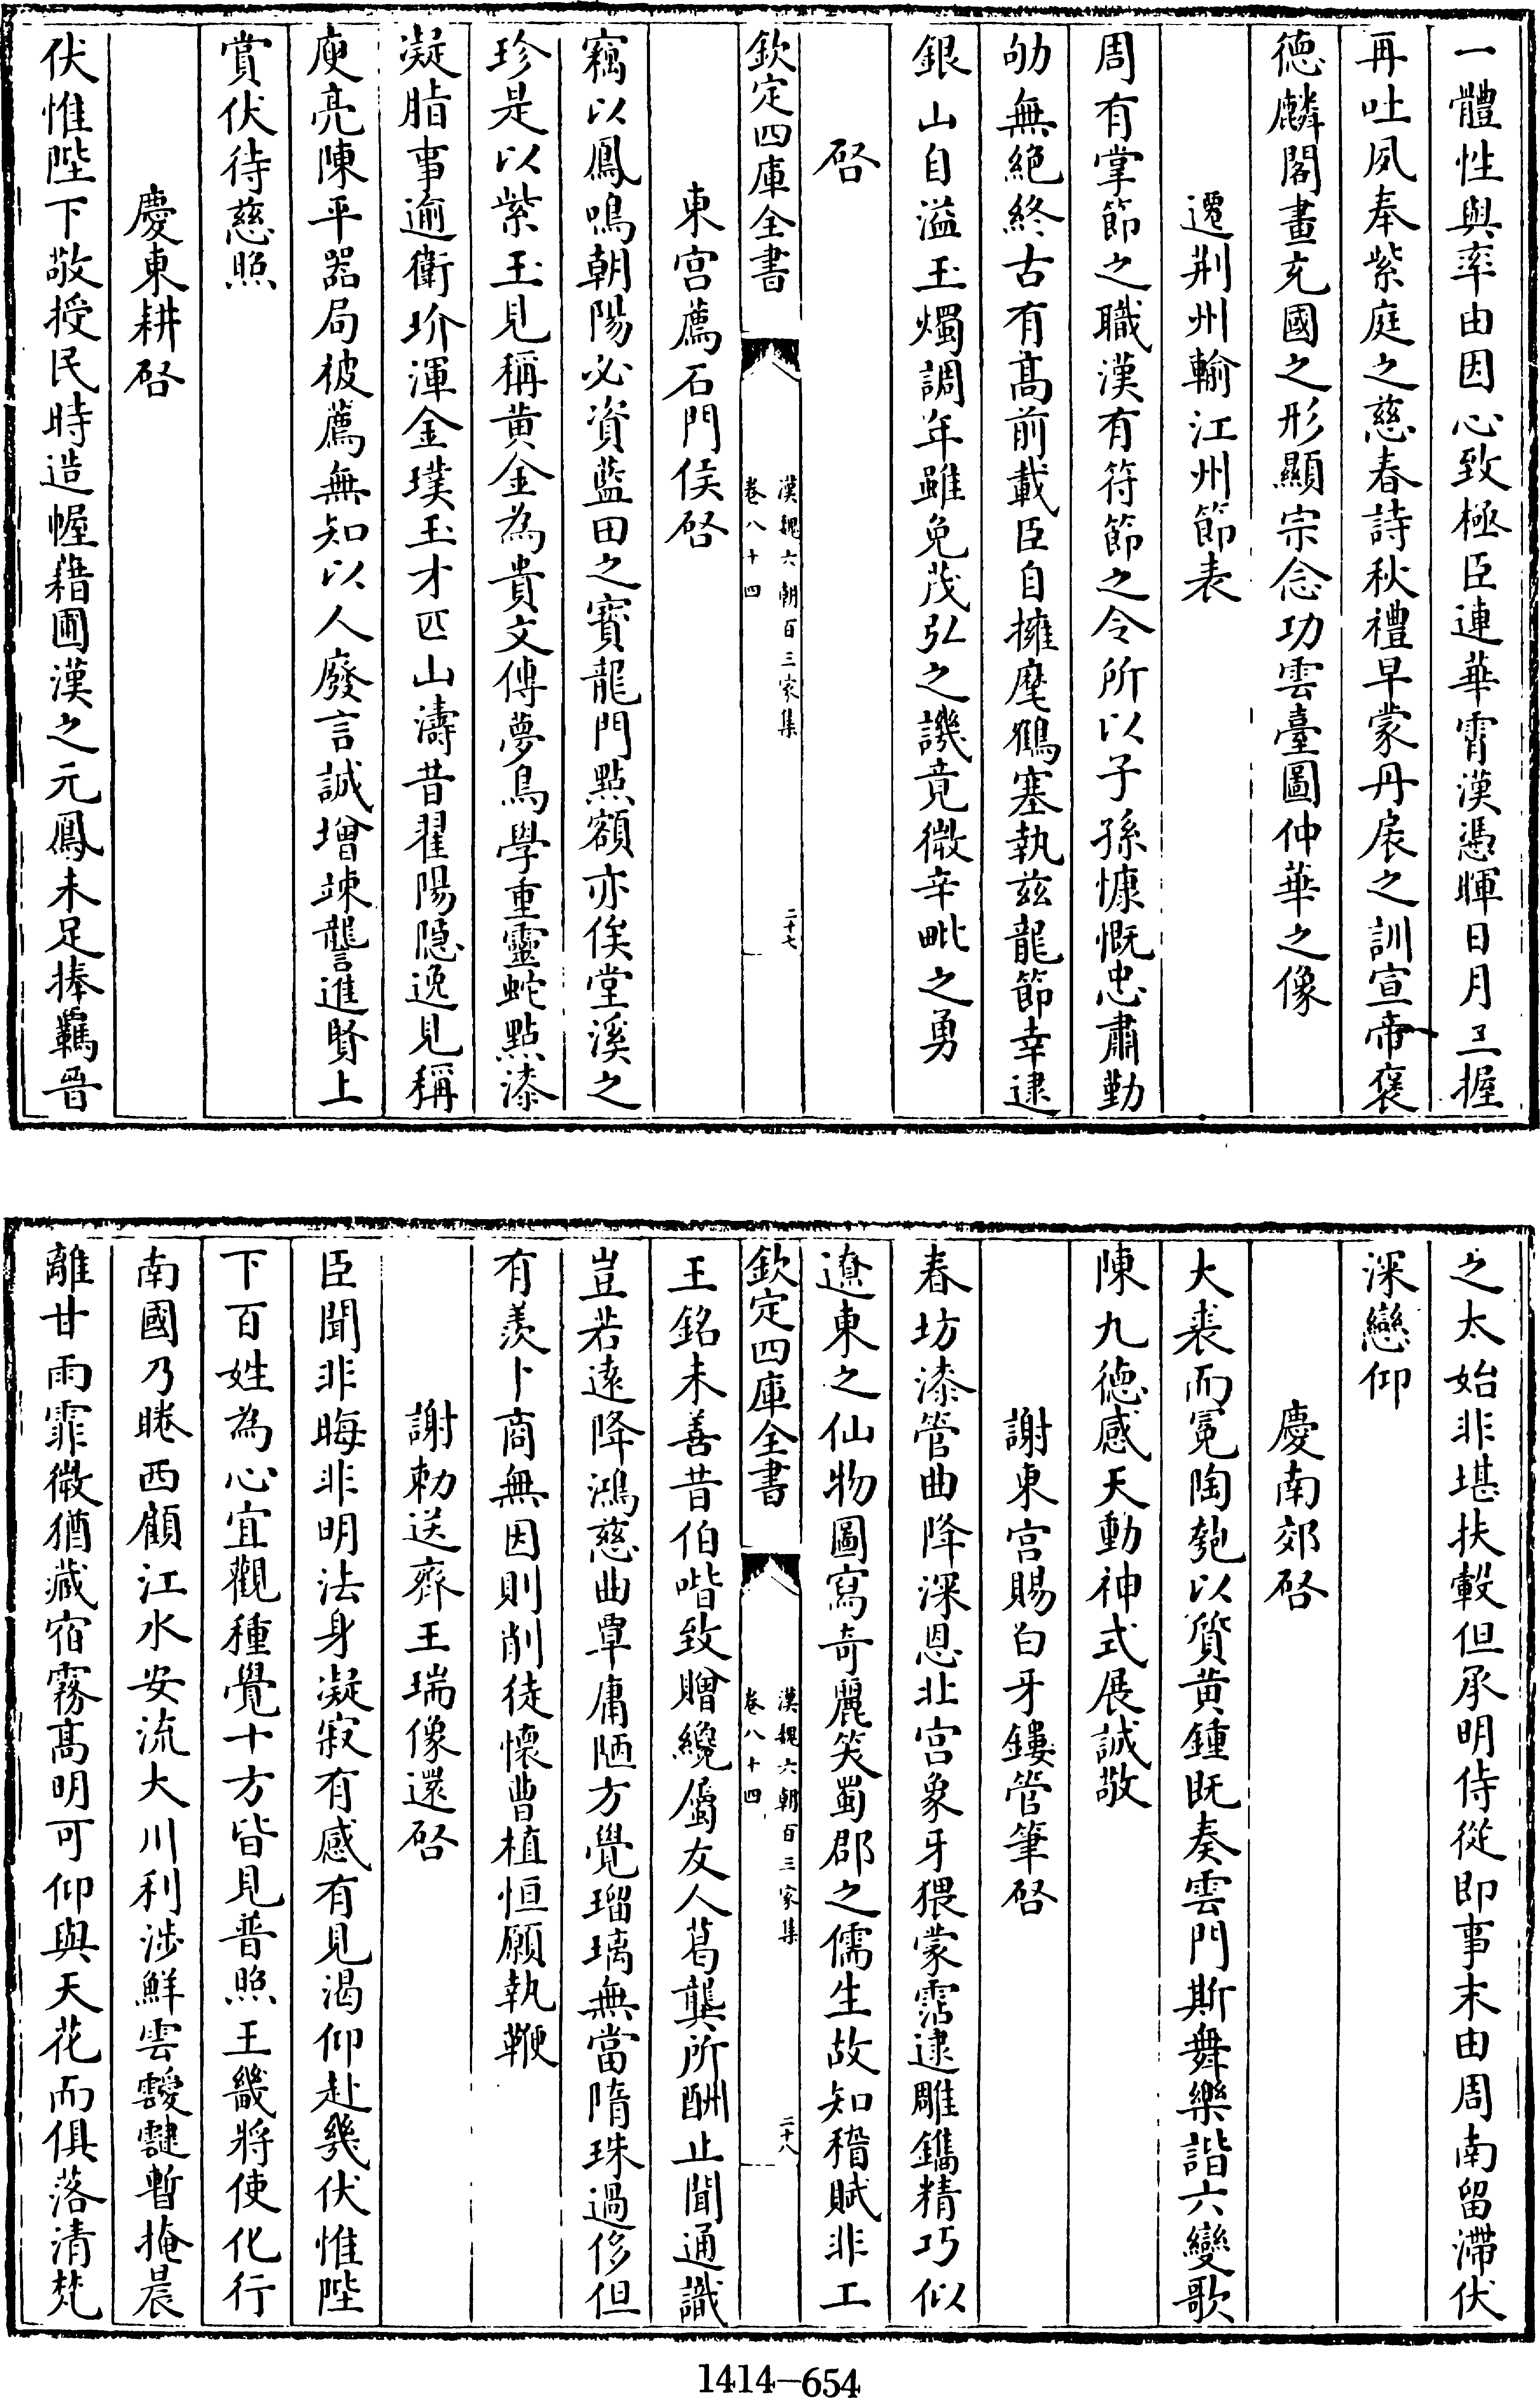 一體性與率由因心致極臣連華霄漢憑暉日月三握
再吐夙奉紫庭之慈春詩秋禮早蒙丹扆之訓宣帝褒
德麟閣畫充國之形顯宗念功雲臺圖仲華之像
遷荆州輸江州節表
周有掌節之職漢有符節之令所以子孫慷慨忠肅勤
劬無絶終古有髙前載臣自擁麾鶴塞執兹龍節幸逮
銀山自溢玉燭調年雖免茂弘之譏竟微辛毗之勇
啓
欽定四庫全書
漢魏六朝百三家集
卷八十四
二十七
東宫薦石門侯啓
竊以鳳鳴朝陽必資藍田之寶龍門點額亦俟堂溪之
珍是以紫玉見稱黄金為貴文傅夢鳥學重靈蛇點漆
凝脂事逾衛玠渾金璞玉才匹山濤昔翟陽隠逸見稱
庾亮陳平器局被薦無知以人廢言誠增竦讋進賢上
賞伏待慈照
慶東耕啓
伏惟陛下敬授民時造幄藉圃漢之元鳳未足捧羈晋
之太始非堪扶轂但承明侍從即事末由周南留滯伏
深戀仰
慶南郊啓
大裘而冕陶匏以質黄鍾既奏雲門斯舞樂諧六變歌
陳九德感天動神式展誠敬
謝東宫賜白牙鏤管筆啓
春坊漆管曲降深恩北宫象牙猥蒙霑逮雕鐫精巧似
遼東之仙物圖寫奇麗笑蜀郡之儒生故知稽賦非工
欽定四庫全書
漢魏六朝百三家集
卷八十四
二十八
王銘未善昔伯喈致贈纔屬友人葛龔所酬止聞通識
豈若逺降鴻慈曲覃庸陋方覺瑠璃無當隋珠過侈但
有羨卜商無因則削徒懷曹植恒願執鞭
謝勅送齊王瑞像還啓
臣聞非晦非明法身凝寂有感有見渴仰赴幾伏惟陛
下百姓為心宜觀種覺十方皆見普照王畿將使化行
南國乃睠西顧江水安流大川利渉鮮雲靉靆暫掩晨
離甘雨霏微猶藏宿霧髙明可仰與天花而俱落清梵
1414-654